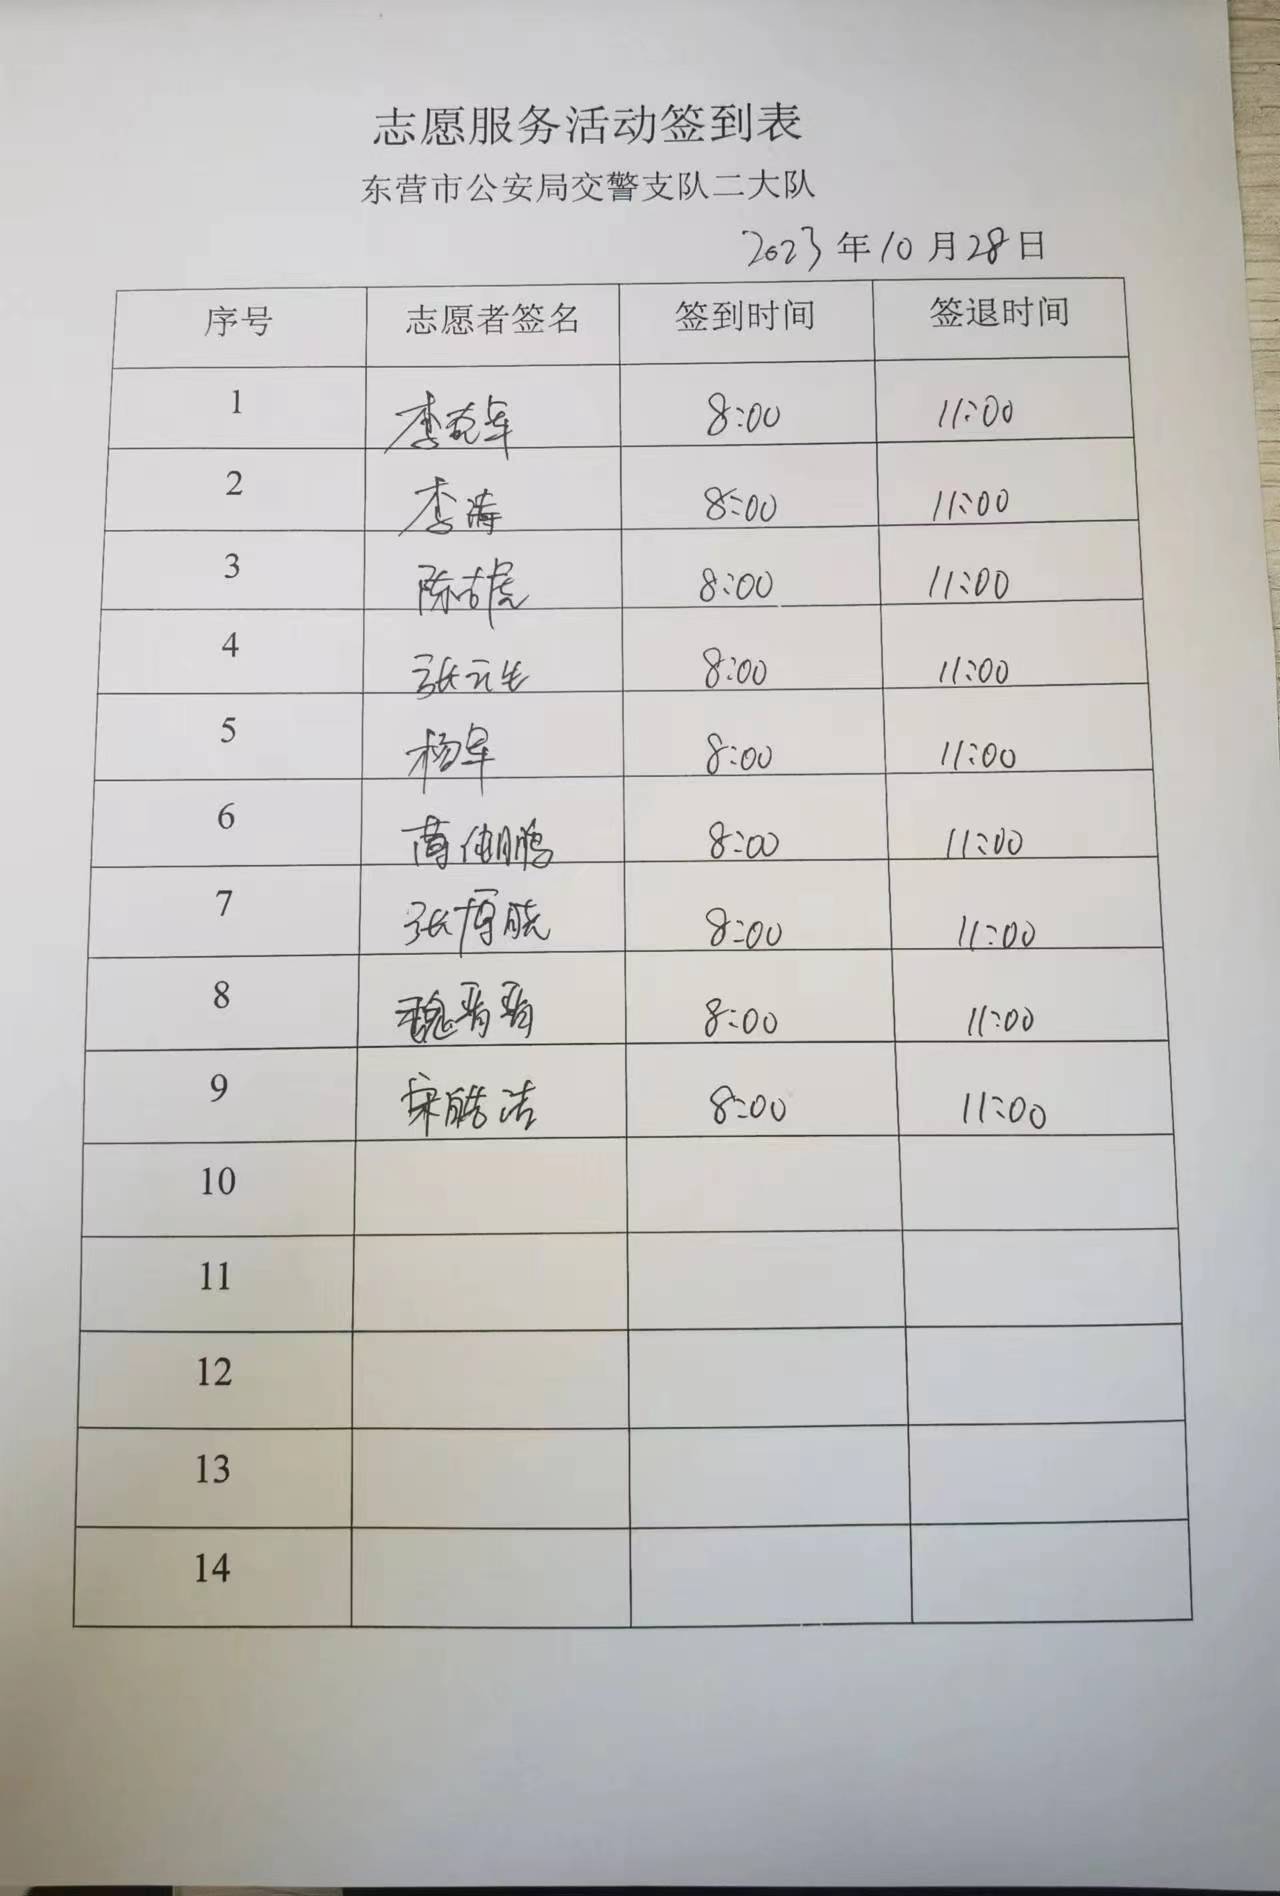 志愿服务活动签到表
东营市公安局交警支队二大队
2023年10月28日
序号 志愿者签名 签到时间 签退时间
1 李克军 8:00 11:00
2 李涛 8:00 11:00
3 陈吉虎 8:00 11:00
4 张元生 8:00 11:00
5 杨军 8:00 11:00
6 8:00 11:00
7 张博晓 8:00 11:00
8 魏晋晋 8:00 11:00
9 宋皓洁 8:00 11:00
10
11
12
13
14